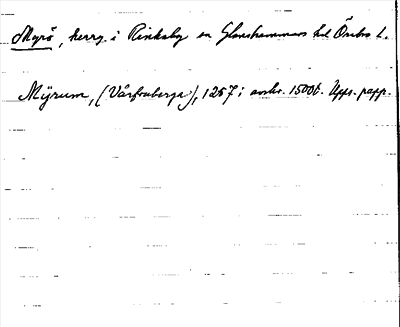 Myrö, herrg. i Rinkaby sn Glanshammars hd Örebro l.
Mÿrum, (Vårfruberga), 1257 i avskr. 1500t. Upps. papp.